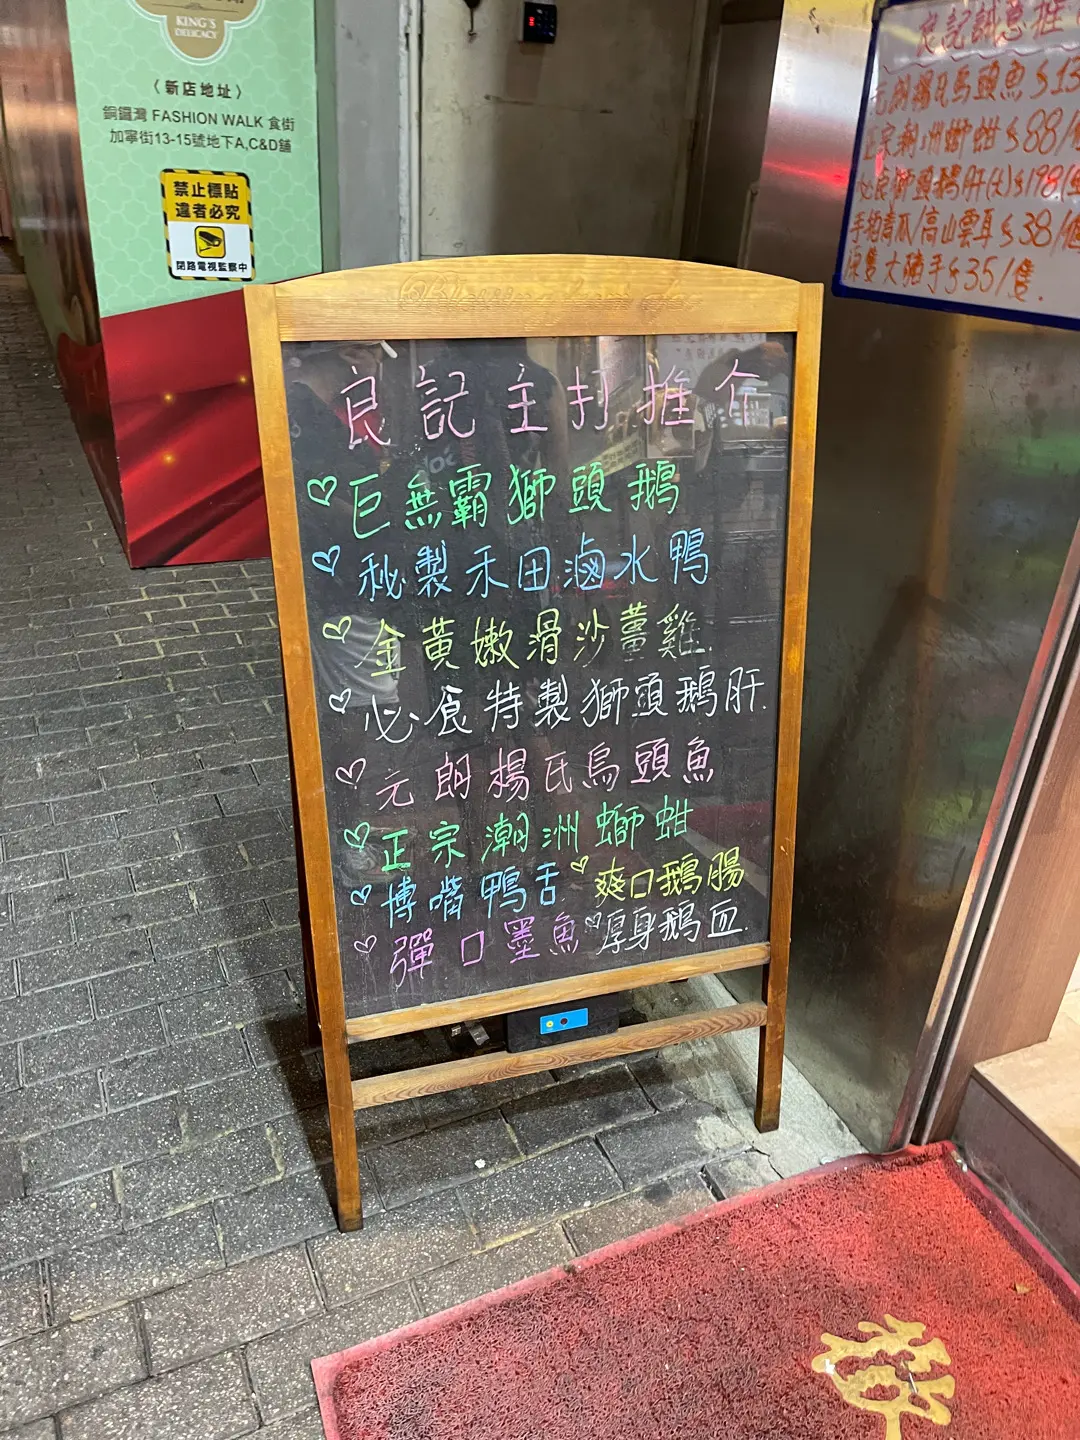 KING'S
DELICACY
〈新店地址〉
銅鑼灣 FASHION WALK 食街
加寧街13-15號地下A,C&D舖
禁止標貼
違者必究
閉路電視監察中
良記誠意推
元朗楊氏烏頭魚$13
正宗潮洲螄蚶$88/
必食獅頭鵝肝(大)$198/
手拍青瓜/高山雲耳$38/個
原隻大豬手$35/隻.
良記主打推介
♡巨無霸獅頭鵝
♡秘製禾田滷水鴨
♡金黃嫩滑沙薑雞.
♡必食特製獅頭鵝肝.
♡元朗楊氏烏頭魚
♡正宗潮洲螄蚶
♡博嘴鴨舌 ♡爽口鵝腸
♡彈口墨魚 ♡厚身鵝血.